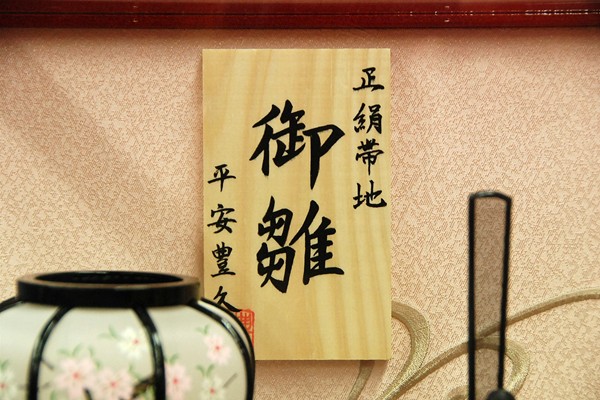 正絹帯地
御雛
平安豊久